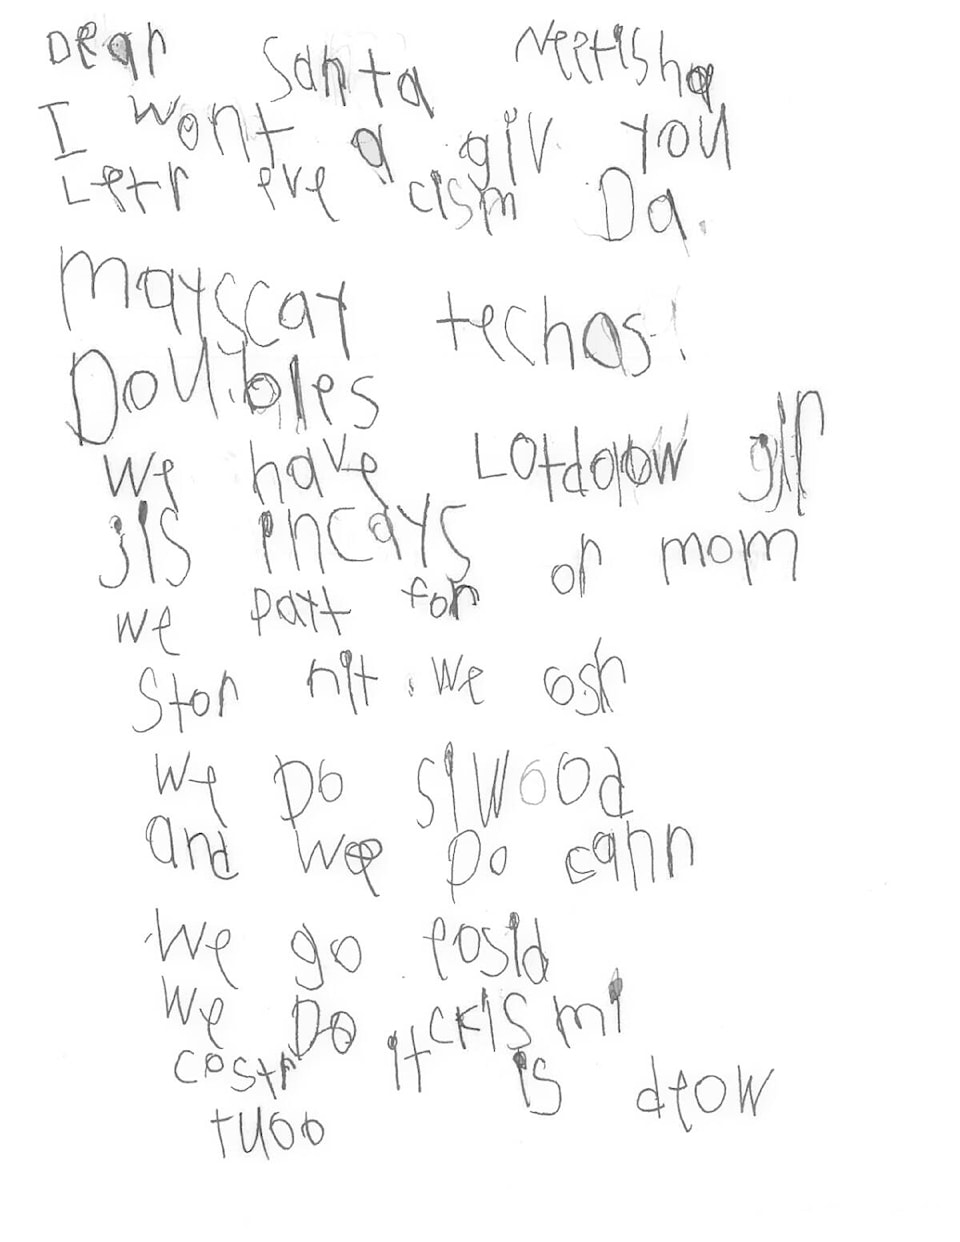 Dear Santa Neetisha
I wont a giv you
Letr eve cism Da.
mayscay techas!
Doubles
We have Lotdoow
jis incays
or mom
We payt for
Stor nit. We osh
We Do siwood
and we Do cann
We go eosid
We Do ickismi
costr it is deow
tuoo